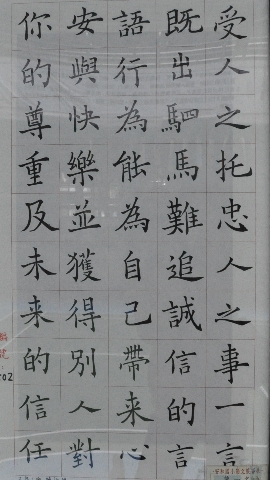 受人之托忠人之事一言
既出駟馬難追誠信的言
語行為能為自己帶来心
安與快樂並獲得別人對
你的尊重及未来的信任